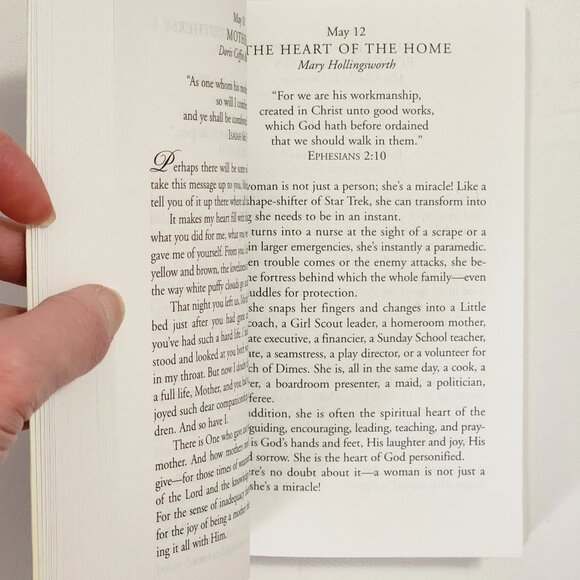 May 11
MOTH
Doris Coffin
"As one whom his mother
so will I comfort
and ye shall be comforted
ISAIAH 66:
Perhaps there will be some
take this message up to you, Mother
tell you of it up there where
It makes my heart fill with
what you did for me, what you
gave me of yourself. From you
yellow and brown, the loveliness
the way white puffy clouds
That night you left us, Mother
bed just after you had gone
you've had such a hard life. I
stood and looked at you
in my throat. But now I
a full life, Mother, and you had
joyed such dear companionship
dren. And so have I.
There is One who gave
mother. And how mothers
give—for those times of
of the Lord and the knowledge
For the sense of inadequacy
for the joy of being a mother
ing it all with Him.
May 12
THE HEART OF THE HOME
Mary Hollingsworth
"For we are his workmanship,
created in Christ unto good works,
which God hath before ordained
that we should walk in them."
EPHESIANS 2:10
woman is not just a person; she's a miracle! Like a
shape-shifter of Star Trek, she can transform into
she needs to be in an instant.
turns into a nurse at the sight of a scrape or a
in larger emergencies, she's instantly a paramedic.
en trouble comes or the enemy attacks, she be-
he fortress behind which the whole family—even
uddles for protection.
he snaps her fingers and changes into a Little
coach, a Girl Scout leader, a homeroom mother,
ate executive, a financier, a Sunday School teacher,
ate, a seamstress, a play director, or a volunteer for
ch of Dimes. She is, all in the same day, a cook, a
er, a boardroom presenter, a maid, a politician,
feree.
ddition, she is often the spiritual heart of the
guiding, encouraging, leading, teaching, and pray-
is God's hands and feet, His laughter and joy, His
d sorrow. She is the heart of God personified.
ere's no doubt about it—a woman is not just a
she's a miracle!